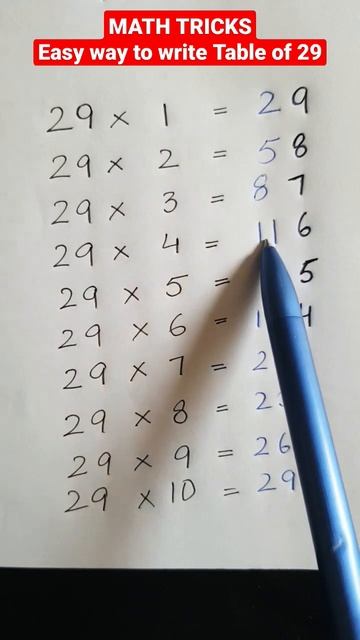 MATH TRICKS
Easy way to write Table of 29
29 × 1 = 29
29 × 2 = 58
29 × 3 = 87
29 × 4 = 116
29 × 5 = 5
29 × 6 = 1 4
29 × 7 = 2
29 × 8 = 23
29 × 9 = 26
29 × 10 = 29